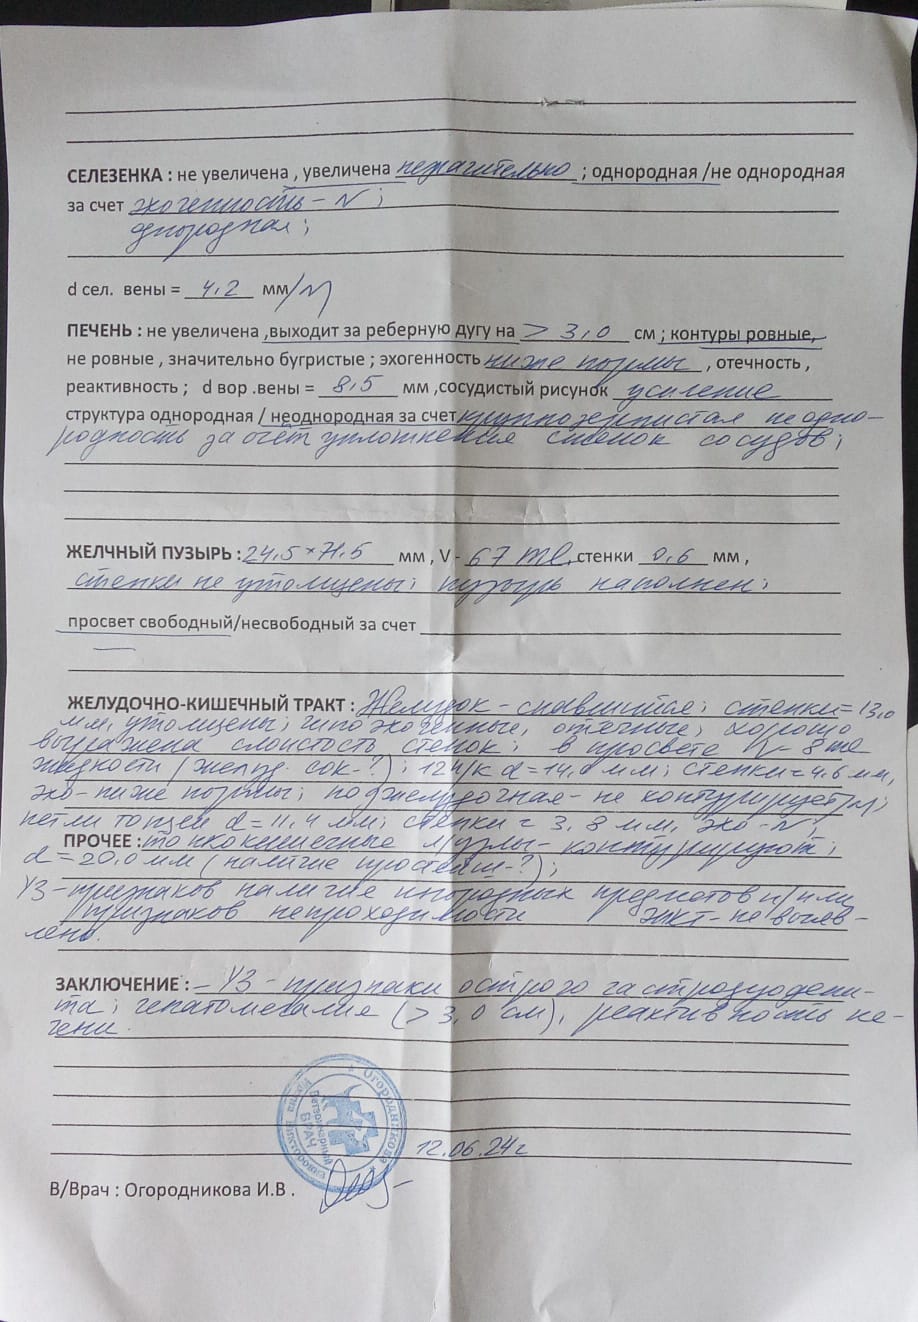 СЕЛЕЗЕНКА : не увеличена , увеличена незначительно ; однородная /не однородная
за счет эхогенность - N ;
однородная ;
d сел. вены = 4,2 мм/N
ПЕЧЕНЬ : не увеличена ,выходит за реберную дугу на > 3,0 см ; контуры ровные,
не ровные , значительно бугристые ; эхогенность ниже нормы , отечность ,
реактивность ; d вор .вены = 8,5 мм ,сосудистый рисунок усиление
структура однородная / неоднородная за счет крупнозернистая неодно-
родность за счёт уплотнения стенок сосудов ;
ЖЕЛЧНЫЙ ПУЗЫРЬ : 24,5 × 71,5 мм , V - 67 ml, стенки 0,6 мм ,
стенки не утолщены ; пузырь наполнен ;
просвет свободный/несвободный за счет
ЖЕЛУДОЧНО-КИШЕЧНЫЙ ТРАКТ : Желудок - спавшийся ; стенки = 13,0
мм, утолщены ; гипоэхогенные, отечные ; хорошо
выражена слоистость стенок ; в просвете
жидкости (желуд. сок - ?) ; 12 п/к d = 14,0 мм ; стенки = 4,6 мм,
эхо - ниже нормы ; поджелудочная - не контурирует/N ;
петли тощей d = 11,4 мм ; стенки = 3,8 мм, эхо - N ;
ПРОЧЕЕ : тонкокишечные л/узлы - контурируют ;
d = 20,0 мм (наличие простейш - ?) ;
УЗ - признаков наличие инородных предметов и/или
признаков непроходимости ЖКТ - не выяв-
лено.
ЗАКЛЮЧЕНИЕ : - УЗ - признаки острого гастродуодени-
та ; гепатомегалие (> 3,0 см), реактивность пе-
чени.
Огородникова
Ветеринарный
ВРАЧ
12.06.24г
В/Врач : Огородникова И.В .